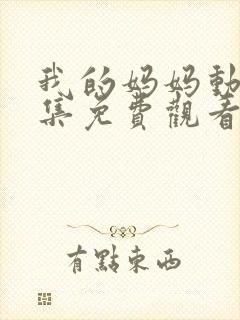 我的妈妈動
集免費觀看
有點東西